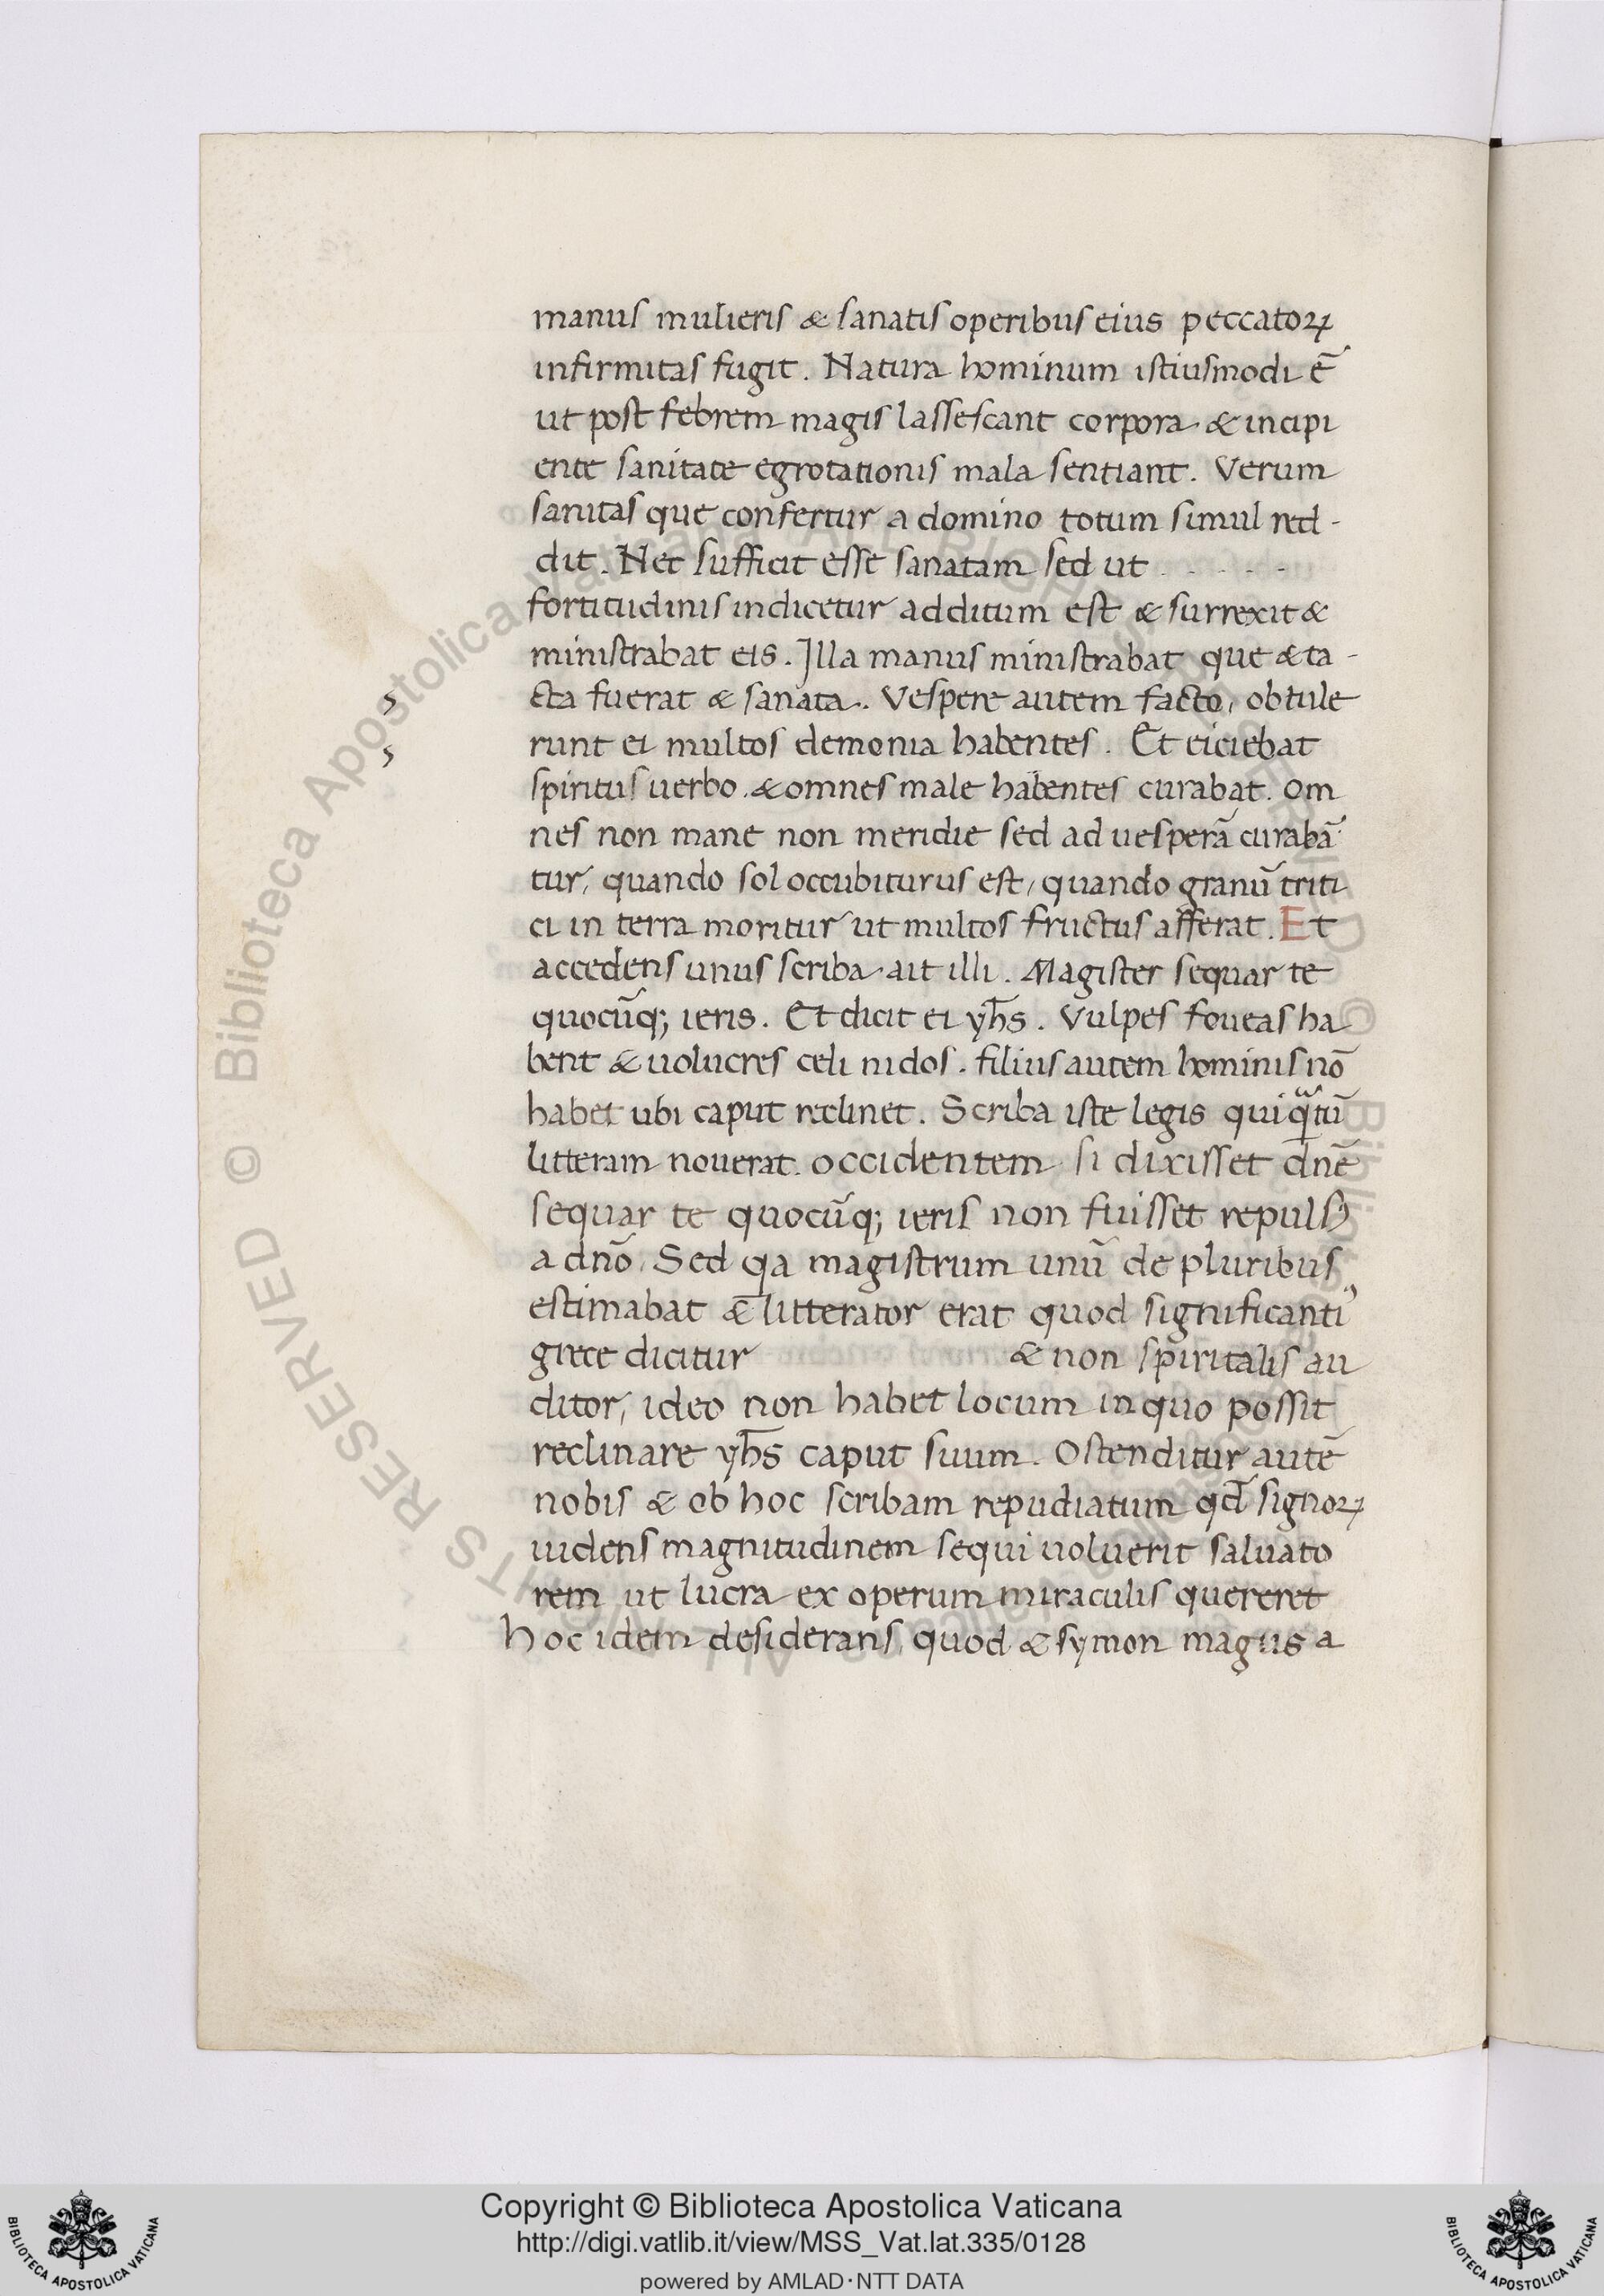 manus mulieris & sanatis operibus eius peccatoꝝ
infirmitas fugit. Natura hominum istiusmodi ē
ut post febrem magis lassescant corpora & incipi
ente sanitate egrotationis mala sentiant. Verum
sanitas que confertur a domino totum simul red-
dit. Nec sufficit esse sanatam sed ut . - - - -
fortitudinis indicetur additum est & surrexit &
ministrabat eis. Illa manus ministrabat que & ta-
cta fuerat & sanata. Vespere autem facto, obtule
runt ei multos demonia habentes. Et eiciebat
spiritus uerbo. & omnes male habentes curabat. Om
nes non mane non meridie sed ad uesperā curabā
tur, quando sol occubiturus est, quando granū triti
ci in terra moritur ut multos fructus afferat. Et
accedens unus scriba ait illi. Magister sequar te
quocūq; ieris. Et dicit ei yħs. Vulpes foueas ha
bent & uolucres celi nidos. filius autem hominis nō
habet ubi caput reclinet. Scriba iste legis qui qᵃtū
litteram nouerat. occidentem si dixisset dnē
sequar te quocūq; ieris non fuisset repulsꝰ
a dnō. Sed qa magistrum unū de pluribus
estimabat & litterator erat quod significantiꝰ
grece dicitur & non spiritalis au
ditor, ideo non habet locum in quo possit
reclinare yħs caput suum. Ostenditur autē
nobis & ob hoc scribam repudiatum qđ signoꝝ
uidens magnitudinem sequi uoluerit saluato
rem ut lucra ex operum miraculis quereret
hoc idem desiderans quod & symon magus a
© Biblioteca Apostolica Vaticana ALL RIGHTS RESERVED
Copyright © Biblioteca Apostolica Vaticana
http://digi.vatlib.it/view/MSS_Vat.lat.335/0128
powered by AMLAD·NTT DATA
BIBLIOTECA APOSTOLICA VATICANA
BIBLIOTECA APOSTOLICA VATICANA